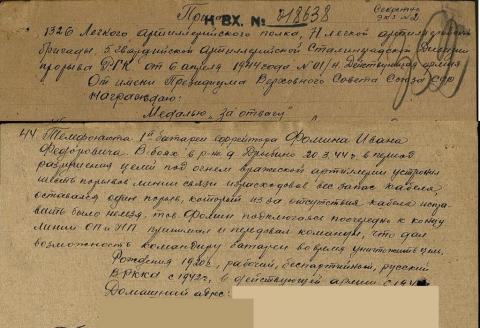 Приказ
Н ВХ. № 218638
Секретно
экз №2
1326 Легкого артиллерийского полка, 71 легкой артиллерийской
бригады, 5 гвардейской артиллерийской Сталинградской дивизии
прорыва РГК от 6 апреля 1944 года №01/н. Действующая армия
От имени Президиума Верховного Совета Союза ССР
Награждаю:
Медалью "За отвагу"
44 Телефониста 1й батареи ефрейтора Фомина Ивана
Федоровича В боях в р-не д. Дрыбино 20.3.44 г. в период
разрушения целей под огнем вражеской артиллерии устроил
шесть порывов линии связи израсходовав вес запас кабеля,
оставался один порыв, который из за отсутствия кабеля испра-
вить было нельзя, тов Фомин подключаясь посередь к концу
линии ОП и НП принимал и передавал команды, что дал
возможность командиру батареи во время уничтожить цели.
Рождения 1920 г., рабочий, беспартийный, русский
В РККА с 1942 г., в действующей армии с
Домашний адрес: